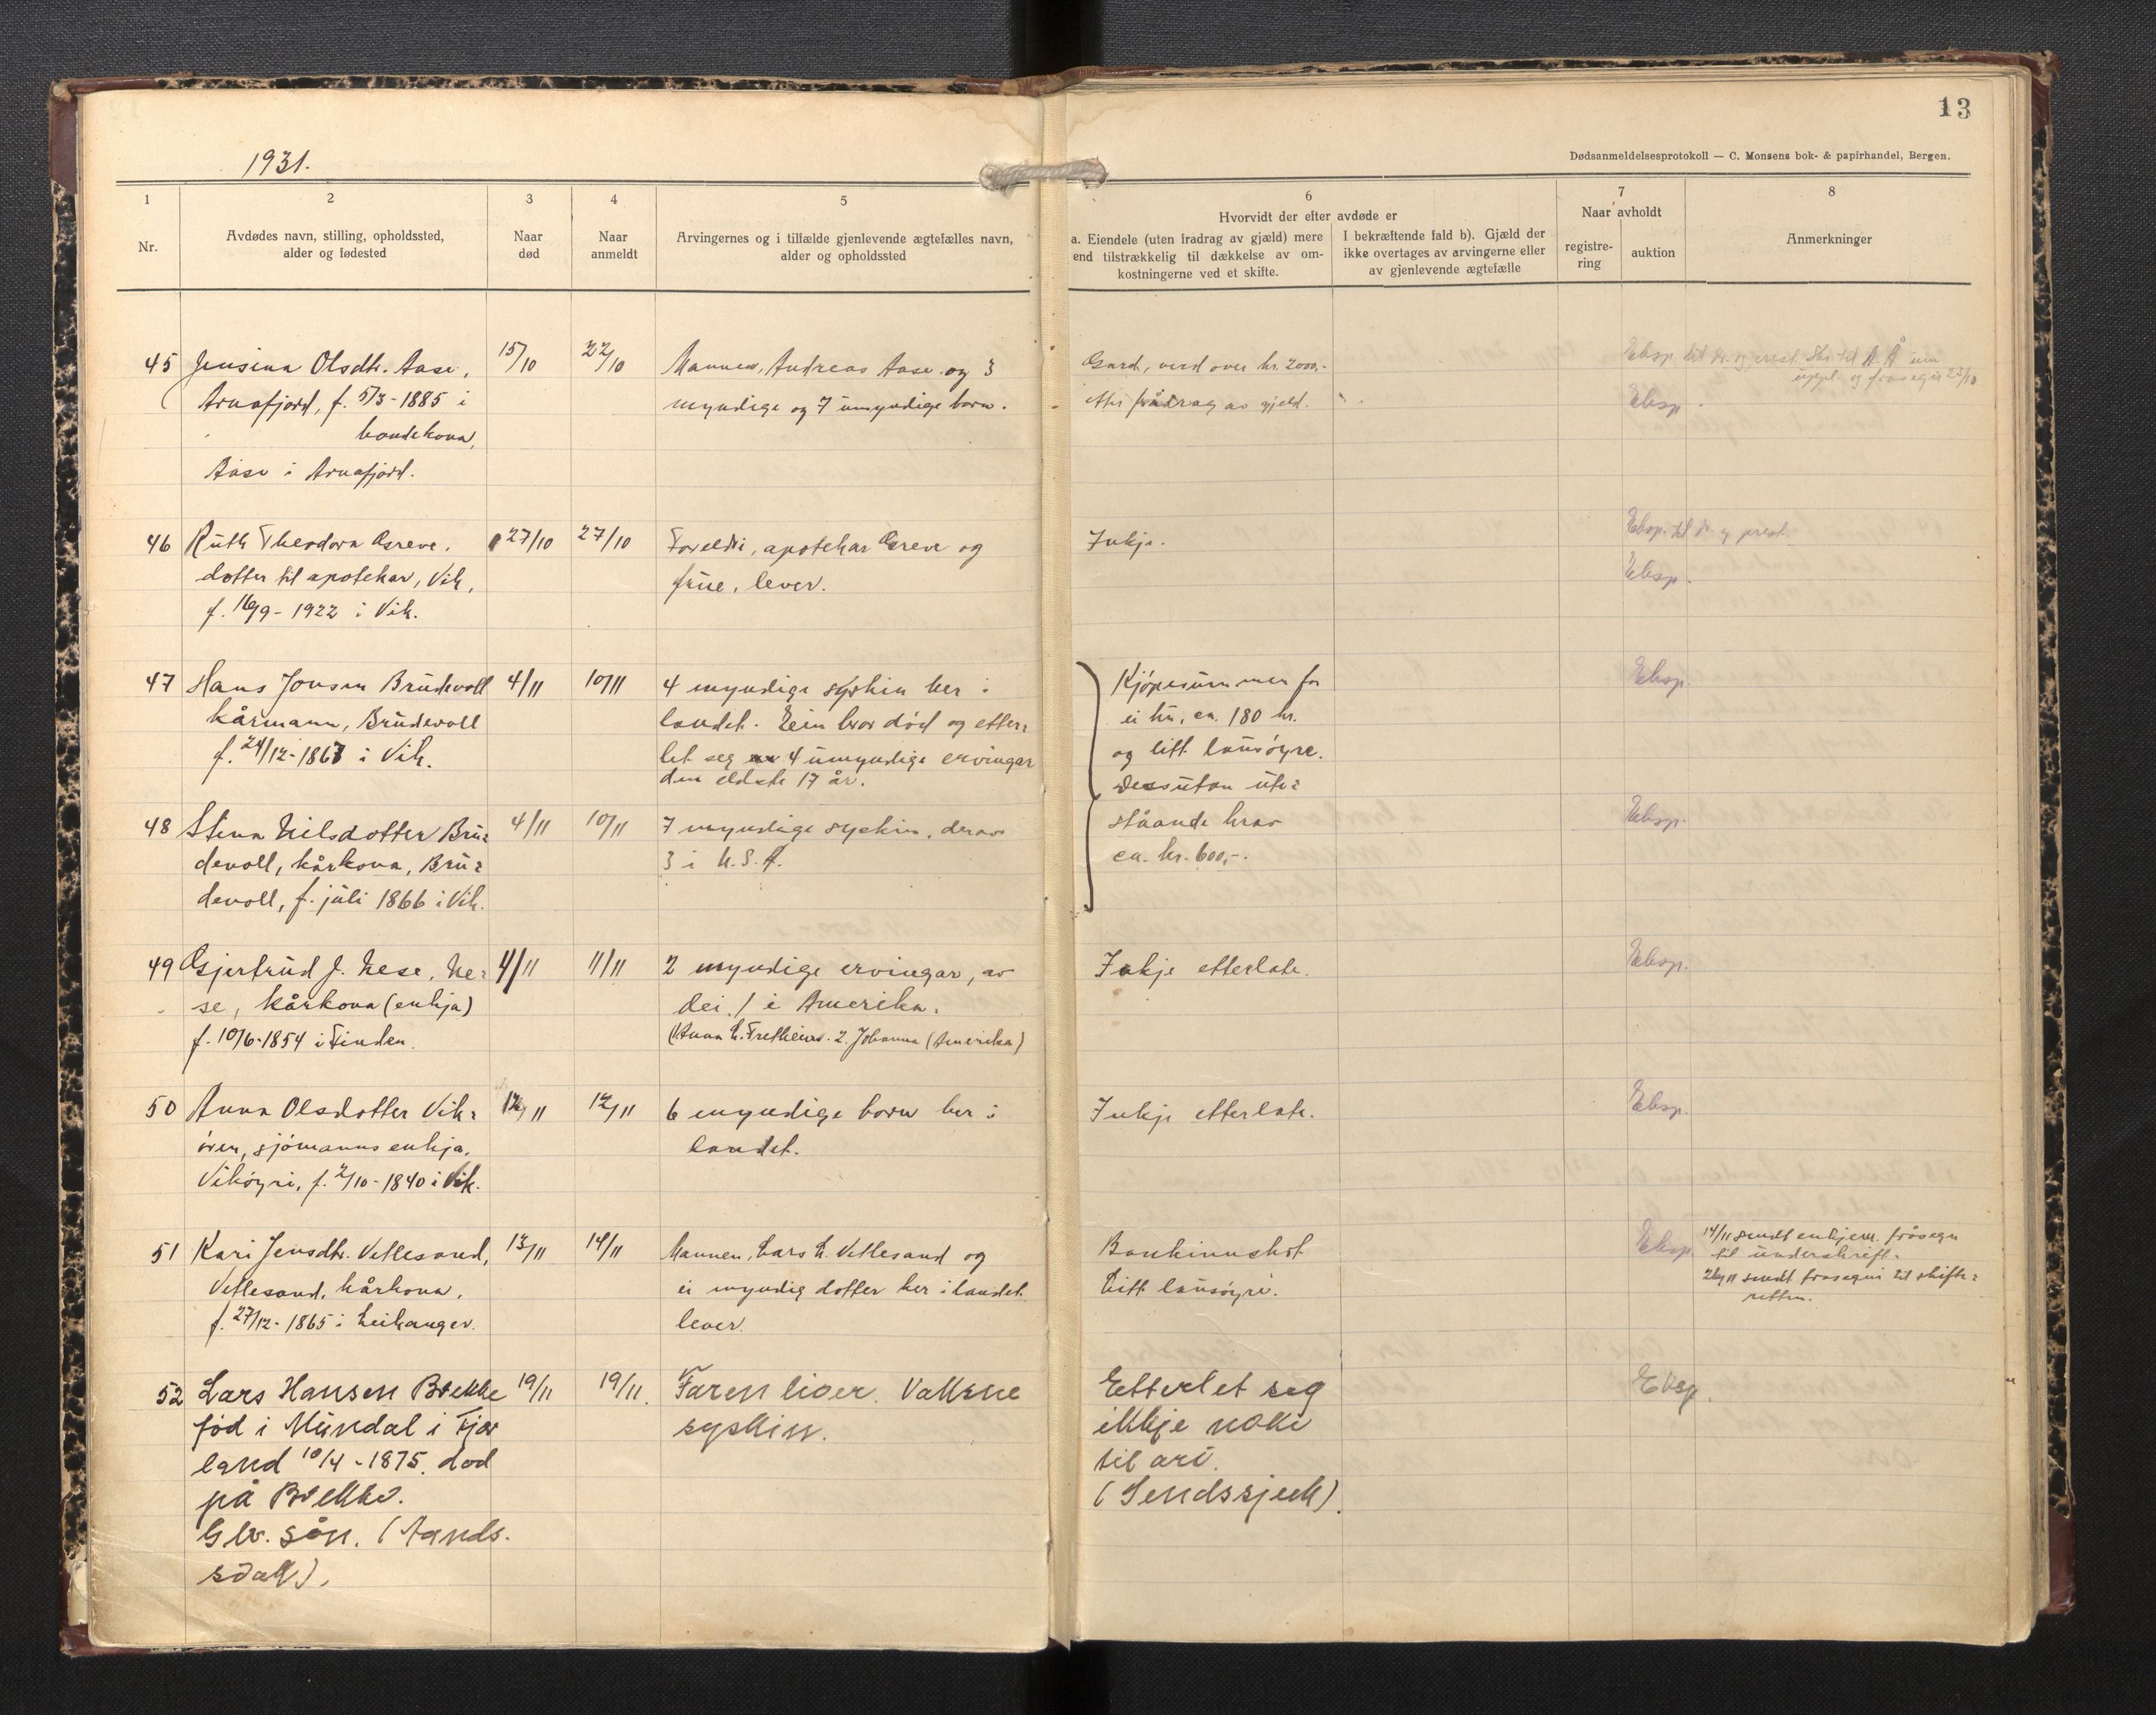 13
1931.
Dødsanmeldelsesprotokoll — C. Monsens bok- & papirhandel, Bergen.
1
2
3
4
5
6
7
8
Nr.
Avdødes navn, stilling, opholdssted,
alder og fødested
Naar
død
Naar
anmeldt
Arvingernes og i tilfælde gjenlevende ægtefælles navn,
alder og opholdssted
Hvorvidt der efter avdøde er
a. Eiendele (uten fradrag av gjæld) mere
end tilstrækkelig til dækkelse av om-
kostningerne ved et skifte.
I bekræftende fald b). Gjæld der
ikke overtages av arvingerne eller
av gjenlevende ægtefælle
Naar avholdt
registre-
ring
auktion
Anmerkninger
45
Jensina Olsdtr. Aase,
Arnafjord, f. 5/3-1885 i
bondekona,
Aase i Arnafjord.
15/10
22/10
Mannen, Andreas Aase og 3
myndige og 7 umyndige born.
Gard, verd over kr. 2000,-
etter frådrag av gjeld.
Eksp. til dr. og prest. Skr. til A. Å um
og frasegn 23/10
Eksp.
46
Ruth Theodora Greve.
dotter til apotekar, Vik,
f. 16/9-1922 i Vik.
27/10
27/10
Foreldri, apotekar Greve og
frue, lever.
Inkje.
Eksp. til dr. og prest.
Eksp.
47
Hans Jonsen Brudevoll
kårmann, Brudevoll
f. 24/12-1867 i Vik.
4/11
10/11
4 myndige syskin her i
landet. Ein bror död og etter=
let seg 4 umyndige ervingar
den eldste 17 år.
Kjöpesummen for
ei ku, ca. 180 kr.
og litt lausöyre.
Dessutan ute=
ståande krav
ca. kr. 600,-.
Eksp.
48
Stina Nilsdotter Bru=
devoll, kårkona, Bru=
devoll, f. juli 1866 i Vik.
4/11
10/11
7 myndige syskin, derav
3 i U.S.A.
Eksp.
49
Gjertrud J. Nese, Ne=
se, kårkona (enkja)
f. 10/6-1854 i Finden.
4/11
11/11
2 myndige ervingar, av
dei 1 i Amerika.
(1. Anna L. Fretheim. 2. Johanna (Amerika)
Inkje etterlate.
Eksp.
50
Anna Olsdotter Vik=
ören, sjömanns enkja.
Viköyri, f. 2/10-1840 i Vik.
12/11
12/11
6 myndige born her i
landet.
Inkje etterlate.
Eksp.
51
Kari Jensdtr. Vetlesand,
Vetlesand, kårkona,
f. 27/12-1865 i Leikanger.
13/11
14/11
Mannen, Lars L. Vetlesand og
ei myndig dotter her i landet
lever.
Bankinnskot
Litt lausöyre.
Eksp.
14/11 sendt enkjem. fråsegn
til underskrift.
sendt frasegni til skifte=
retten.
52
Lars Hansen Brekke
fød i Mundal i Fjær
land 10/4-1875. død
på Brekke.
son. (Aands.
19/11
19/11.
Faren liver. Vaksne
syskin.
Etterlet seg
ikkje noke
til arv.
Eksp.